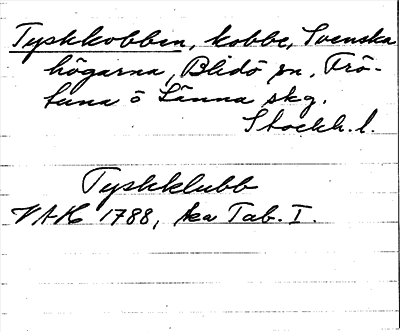 Tyskkobben, kobbe, Svenska
högarna, Blidö sn, Frö-
tuna o Länna skg.
Stockh. l.
Tyskklubb
VAH 1788, Tab. I.